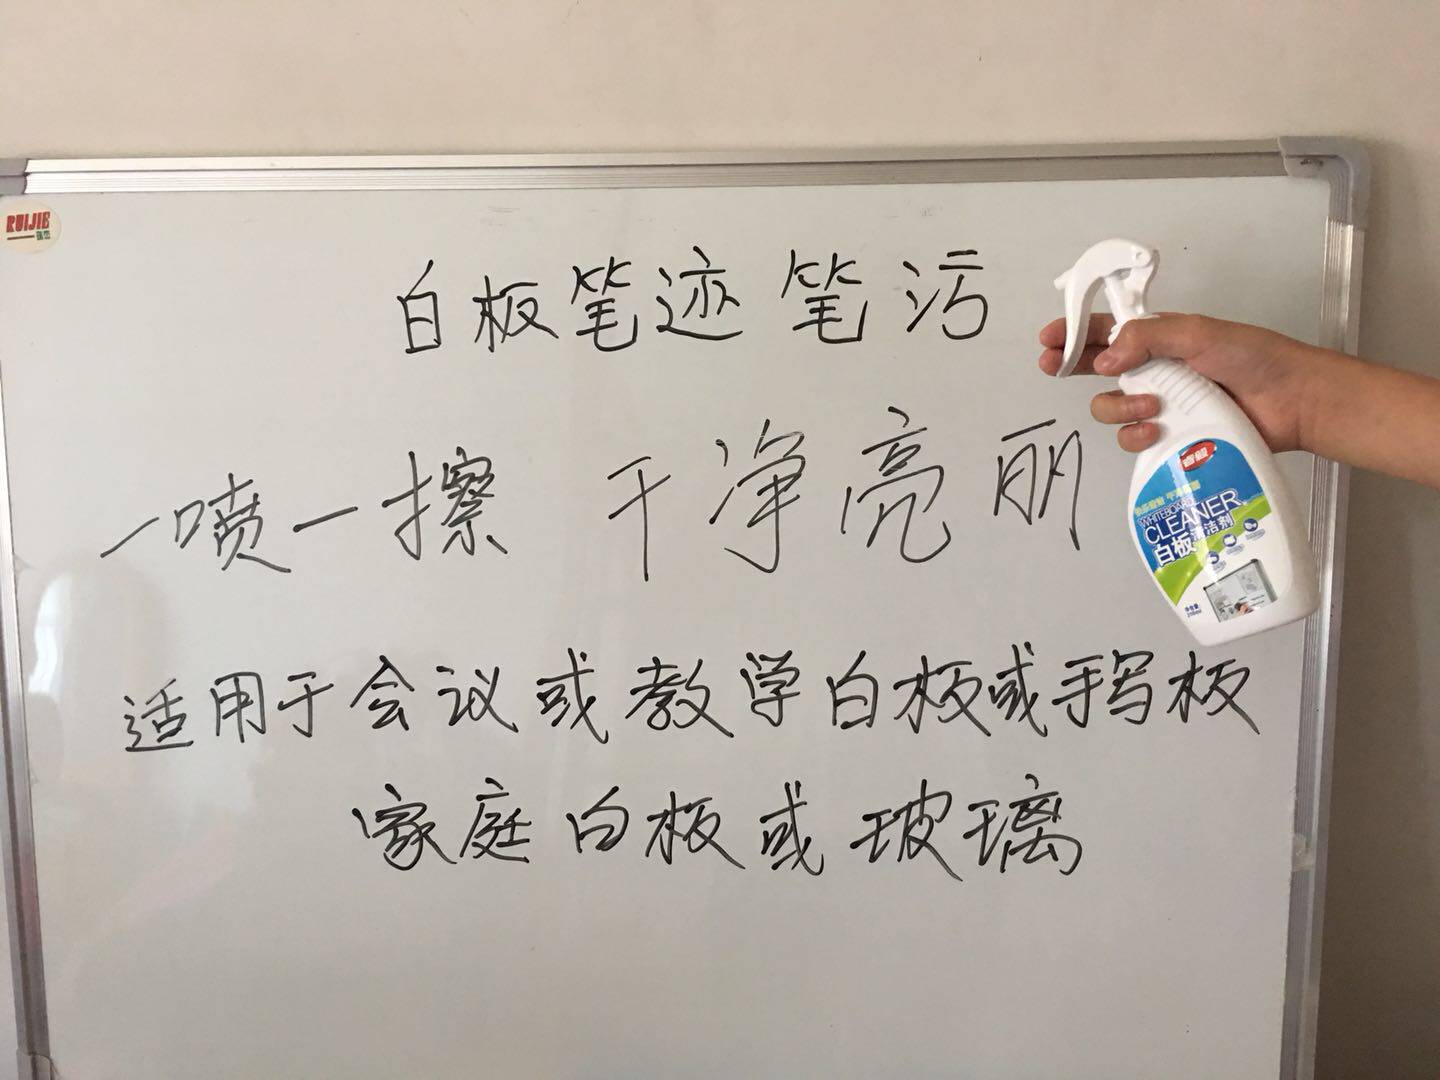 RUIJIE
瑞杰
白板笔迹 笔污
一喷一擦 干净亮丽
适用于会议或教学白板或手写板
家庭白板或玻璃
WHITEBOARD
CLEANER
白板清洁剂